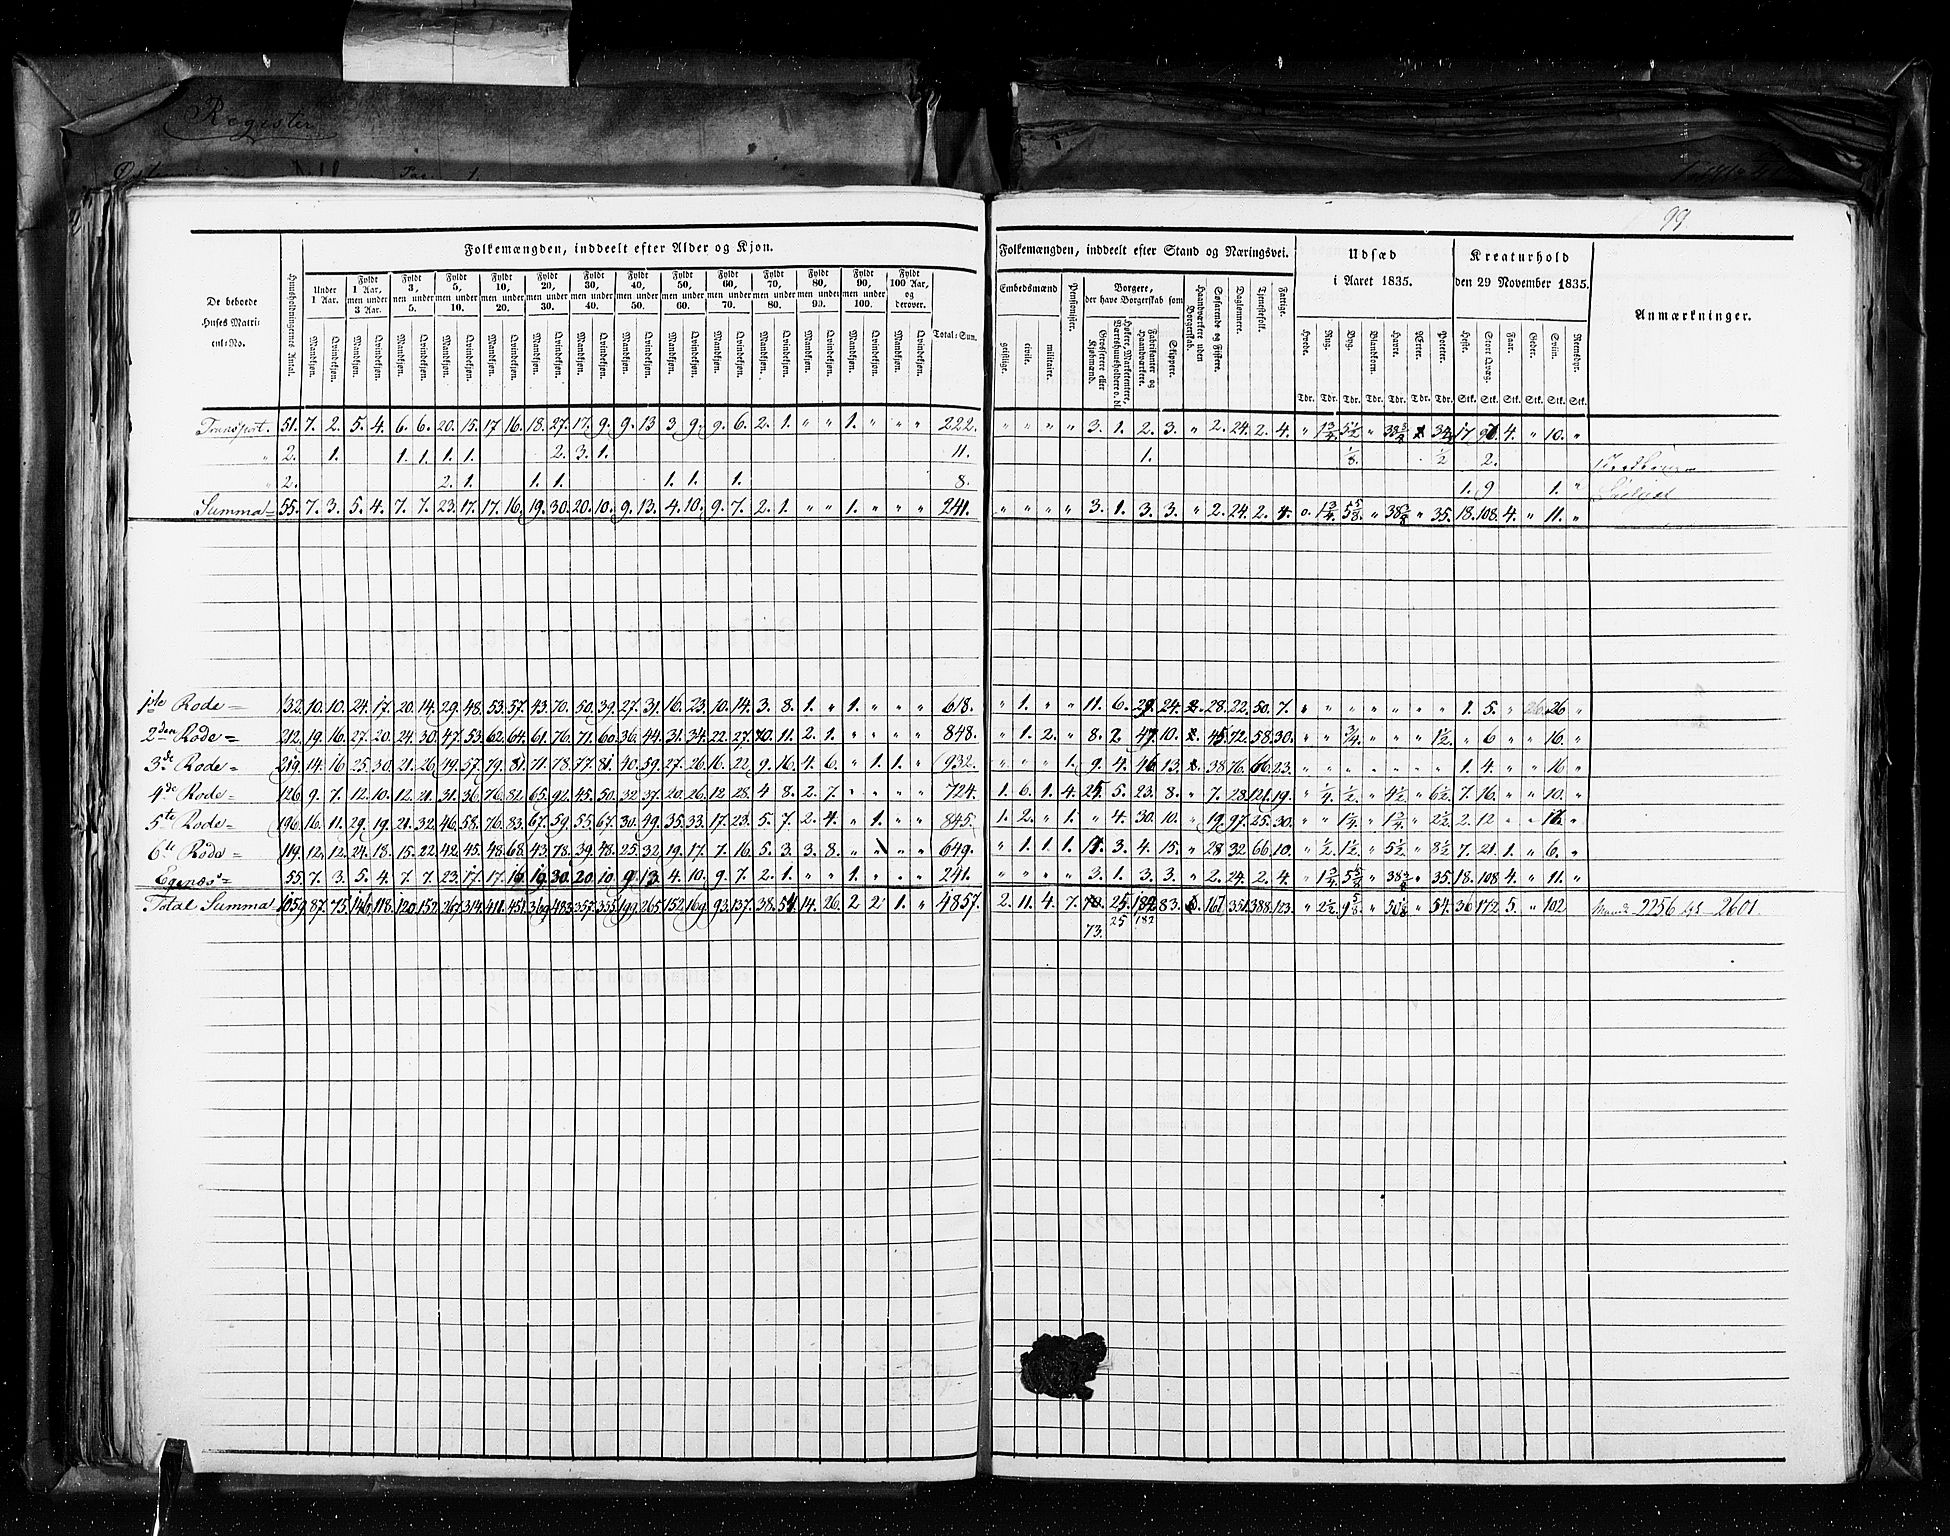 Register
99
Folkemængden, inddeelt efter Alder og Kjøn.
De beboede Huses Matrikul-No.
Huusholdningernes Antal.
Under 1 Aar.
Fyldt 1 Aar, men under 3 Aar.
Fyldt 3, men under 5.
Fyldt 5, men under 10.
Fyldt 10, men under 20.
Fyldt 20, men under 30.
Fyldt 30, men under 40.
Fyldt 40, men under 50.
Fyldt 50, men under 60.
Fyldt 60, men under 70.
Fyldt 70, men under 80.
Fyldt 80, men under 90.
Fyldt 90, men under 100.
Fyldt 100 Aar, og derover.
Mandkjøn. Qvindekjøn.
Total-Sum.
Folkemængden, inddeelt efter Stand og Næringsvei.
Embedsmænd
geistlige. civile. militaire.
Pensionister.
Borgere, der have Borgerskab som
Grosserere eller Kjøbmænd.
Høkere, Marketentere, Værtshuusholdere o. dl.
Fabrikanter og Haandværkere.
Skippere.
Haandværkere uden Borgerskab.
Søfarende og Fiskere.
Daglønnere.
Tjenestefolk.
Fattige.
Udsæd i Aaret 1835.
Hvede. Rug. Byg. Blandkorn. Havre. Ærter. Poteter.
Tdr. Tdr. Tdr. Tdr. Tdr. Tdr. Tdr.
Kreaturhold den 29 November 1835.
Heste. Stort Qvæg. Faar. Geder. Sviin. Rensdyr.
Stk. Stk. Stk. Stk. Stk. Stk.
Anmærkninger.
Transport. 51. 7. 2. 5. 4. 6. 6. 20. 15. 17 16. 18. 27. 17. 9. 9. 13 3 9. 9. 6. 2. 1. " " 1. " " " 222. " " " " 3. 1. 2. 3. " 2. 24. 2. 4. " 1 3/4. 5 1/2 " 4. " 10. "
" 2. 1. 1. 1. 1. 1. 2. 3. 1. 11. 1. 1/8. 1/2 2.
" 2. 2. 1. 1. 1. 1. 1. 1. 8. 1. 9 1. "
Summa 55. 7. 3. 5. 4. 7. 7. 23. 17. 17. 16. 19. 30. 20. 10. 9. 13. 4. 10. 9. 7. 2. 1. " " 1. " " " 241. " " " " 3. 1. 3. 3. " 2. 24. 2. 4. 1 3/4. 5 5/8. " " 35. 18. 108. 4. " 11. "
1ste Rode 132. 10. 10. 24. 17. 20. 14. 29. 48. 53. 57. 43. 70. 50. 39. 27. 31. 16. 23. 10. 14. 3. 8. 1. " 1. " " " 618. " 1. " " 11. 6. 29. 24. 28. 22. 50. 7. " " " " " " " 1. 5. " 26 "
2den Rode 212. 19. 16. 27. 20. 24. 30. 47. 53. 62. 64. 61. 76. 71. 60. 36. 44. 31. 34. 22. 27. 10. 11. 2. 1. " " " " 848. " 1. 2. " 8. 7. 47. 10. 45. 72. 58. 30. " " 3/4. " " " 1 1/2. " 6 " " 16. "
3de Rode 219. 14. 16 25. 30. 21. 26. 49. 57. 79. 81. 71. 78. 77. 81. 40. 59. 27. 26. 16. 22. 9. 16. 4. 6. " 1. 1. " 932. " " " 1. 9. 4. 46. 13. 38 76. 66. 23. " " " " " " " 1. 4. " " 16 "
4de Rode 126 9. 7. 12. 10. 12. 21. 31. 36. 76. 82. 65. 92. 45. 50. 32 37. 20. 26. 12 28. 4. 8. 2. 7. " " " " 724. 1. 6. 1. 4. 25. 5. 23. 8. " 7. 28. 121. 19. " 1/4. 1/2. " 4 1/2. " 6 1/2. 7. 16. " " 10. "
5te Rode 196. 16. 11. 29. 19. 21. 32. 46. 58. 76. 83. 67. 59. 55. 67. 30. 49. 35. 33. 17. 23. 5. 7. 2. 4. " 1. " " 845. 1. 2. " 1. " 4. 30. 10. " 19. 97. 25. 30. " " 1 1/4. " 1 3/4. " 2 1/2. 2. 12 " " 17. "
6te Rode 119. 12. 12. 24. 18. 15. 22. 42. 45. 48. 68. 43. 78. 39. 48. 25. 32. 19. 17. 7. 16. 5. 3. 3. 8. " " " 649. " 1. 1. 1. 3. 4. 15. " 28 32. 66. 10. " 1/2. 1 1/2. " 5 1/2. " 8 1/2. 7. 21. 1. " 6. "
Egenæs 55. 7. 3. 5. 4. 7. 7. 23. 17. 17. 16. 19. 30. 20. 10. 9. 13. 4. 10. 9. 7. 2. 1. " " 1. " " " 241. " " " " 3. 1. 3. 3. " 2. 24. 2. 4 " 1 3/4. 5 5/8 " " 35. 18. 108 4. " 11. "
Total Summa 1059. 87. 75. 146. 118. 120. 152. 267. 314. 411. 451. 369. 483. 357. 355. 199. 265. 152 169. 93. 137. 38. 54. 14. 26. 2 2 1. " 4857. 2. 11. 4. 7. 25. 83. 167. 351. 388. 123. " 2 1/2. 9 5/8. " " 54. 36 172. 5. " 102. 2256 2601.
73. 25 182